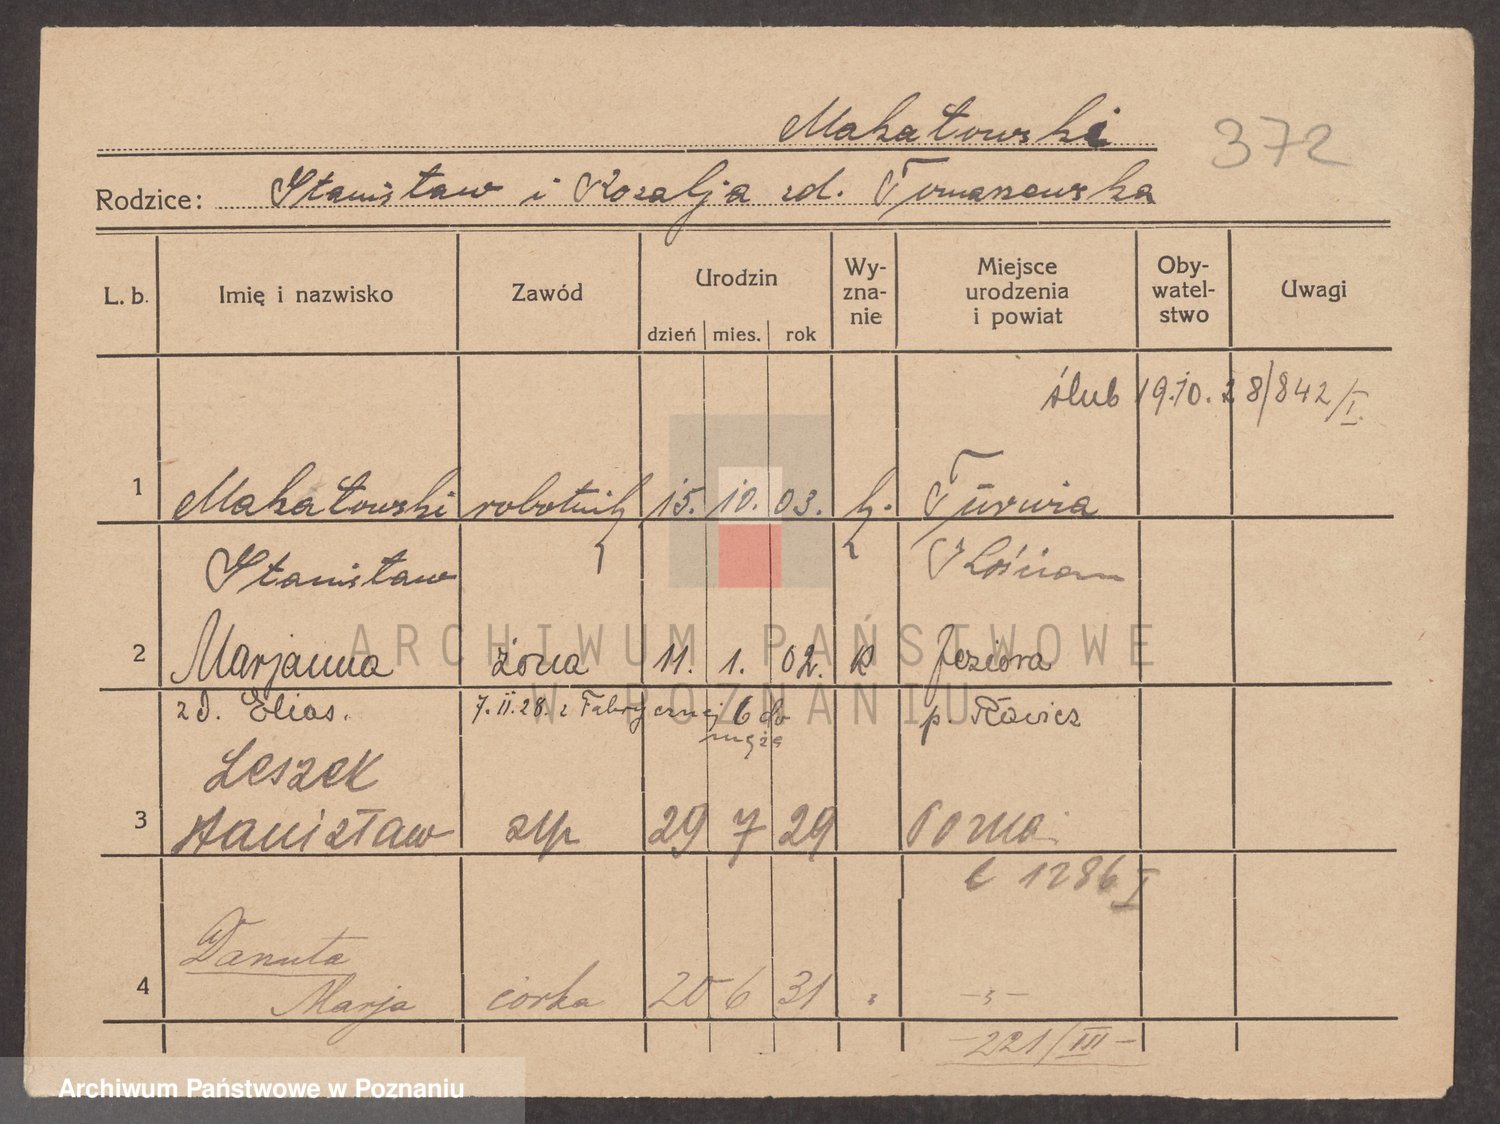 Makatowski
372
Rodzice: Stanisław i Rozalja zd. Tomaszewska
L. b. Imię i nazwisko Zawód Urodzin Wy-zna-nie Miejsce urodzenia i powiat Oby-watel-stwo Uwagi
dzień mies. rok
ślub 19.10.28/842/I.
1 Makatowski robotnik 15. 10. 03. k. Turwia
Stanisław Kościan
2 Marjanna żona 11. 1. 02. k Jeziora
zd. Elias. 7.II.28. z Fabrycznej 6 do p. Rawicz
męża
Leszek
3 Stanisław syn 29 7 29 Pozna
l 1286 I
Danuta
4 Marja córka 20 6 31 " -"-
-221/III-
ARCHIWUM PAŃSTWOWE
W POZNANIU
Archiwum Państwowe w Poznaniu